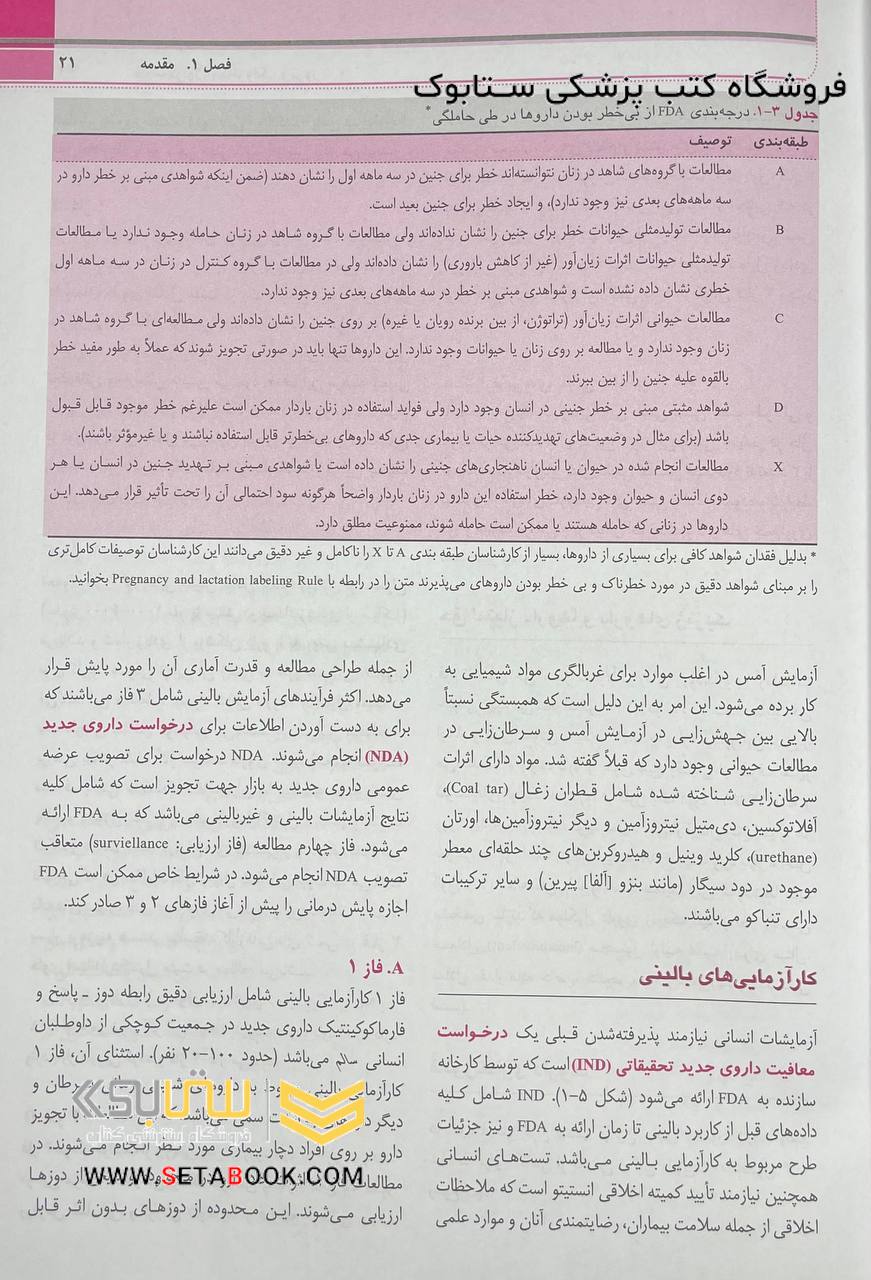 فصل ۱. مقدمه ۲۱
فروشگاه کتب پزشکی ستابوک
جدول ۳-۱. درجه‌بندی FDA از بی‌خطر بودن داروها در طی حاملگی*
طبقه‌بندی توصیف
A مطالعات با گروه‌های شاهد در زنان نتوانسته‌اند خطر برای جنین در سه ماهه اول را نشان دهند (ضمن اینکه شواهدی مبنی بر خطر دارو در
سه ماهه‌های بعدی نیز وجود ندارد)، و ایجاد خطر برای جنین بعید است.
B مطالعات تولیدمثلی حیوانات خطر برای جنین را نشان نداده‌اند ولی مطالعات با گروه شاهد در زنان حامله وجود ندارد یا مطالعات
تولیدمثلی حیوانات اثرات زیان‌آور (غیر از کاهش باروری) را نشان داده‌اند ولی در مطالعات با گروه کنترل در زنان در سه ماهه اول
خطری نشان داده نشده است و شواهدی مبنی بر خطر در سه ماهه‌های بعدی نیز وجود ندارد.
C مطالعات حیوانی اثرات زیان‌آور (تراتوژن، از بین برنده رویان یا غیره) بر روی جنین را نشان داده‌اند ولی مطالعه‌ای با گروه شاهد در
زنان وجود ندارد و یا مطالعه بر روی زنان یا حیوانات وجود ندارد. این داروها تنها باید در صورتی تجویز شوند که عملاً به طور مفید خطر
بالقوه علیه جنین را از بین ببرند.
D شواهد مثبتی مبنی بر خطر جنینی در انسان وجود دارد ولی فواید استفاده در زنان باردار ممکن است علیرغم خطر موجود قابل قبول
باشد (برای مثال در وضعیت‌های تهدیدکننده حیات یا بیماری جدی که داروهای بی‌خطرتر قابل استفاده نباشند و یا غیرمؤثر باشند).
X مطالعات انجام شده در حیوان یا انسان ناهنجاری‌های جنینی را نشان داده است یا شواهدی مبنی بر تهدید جنین در انسان یا هر
دوی انسان و حیوان وجود دارد، خطر استفاده این دارو در زنان باردار واضحاً هرگونه سود احتمالی آن را تحت تأثیر قرار می‌دهد. این
داروها در زنانی که حامله هستند یا ممکن است حامله شوند، ممنوعیت مطلق دارد.
* بدلیل فقدان شواهد کافی برای بسیاری از داروها، بسیار از کارشناسان طبقه بندی A تا X را ناکامل و غیر دقیق می‌دانند این کارشناسان توصیفات کامل‌تری
را بر مبنای شواهد دقیق در مورد خطرناک و بی خطر بودن داروهای می‌پذیرند متن را در رابطه با Pregnancy and lactation labeling Rule بخوانید.
آزمایش آمس در اغلب موارد برای غربالگری مواد شیمیایی به
کار برده می‌شود. این امر به این دلیل است که همبستگی نسبتاً
بالایی بین جهش‌زایی در آزمایش آمس و سرطان‌زایی در
مطالعات حیوانی وجود دارد که قبلاً گفته شد. مواد دارای اثرات
سرطان‌زایی شناخته شده شامل قطران زغال (Coal tar)،
آفلاتوکسین، دی‌متیل نیتروزآمین و دیگر نیتروزآمین‌ها، اورتان
(urethane)، کلرید وینیل و هیدروکربن‌های چند حلقه‌ای معطر
موجود در دود سیگار (مانند بنزو [آلفا] پیرین) و سایر ترکیبات
دارای تنباکو می‌باشند.
کارآزمایی‌های بالینی
آزمایشات انسانی نیازمند پذیرفته‌شدن قبلی یک درخواست
معافیت داروی جدید تحقیقاتی (IND) است که توسط کارخانه
سازنده به FDA ارائه می‌شود (شکل ۵-۱). IND شامل کلیه
داده‌های قبل از کاربرد بالینی تا زمان ارائه به FDA و نیز جزئیات
طرح مربوط به کارآزمایی بالینی می‌باشد. تست‌های انسانی
همچنین نیازمند تأیید کمیته اخلاقی انستیتو است که ملاحظات
اخلاقی از جمله سلامت بیماران، رضایتمندی آنان و موارد علمی
از جمله طراحی مطالعه و قدرت آماری آن را مورد پایش قرار
می‌دهد. اکثر فرآیندهای آزمایش بالینی شامل ۳ فاز می‌باشند که
برای به دست آوردن اطلاعات برای درخواست داروی جدید
(NDA) انجام می‌شوند. NDA درخواست برای تصویب عرضه
عمومی داروی جدید به بازار جهت تجویز است که شامل کلیه
نتایج آزمایشات بالینی و غیربالینی می‌باشد که به FDA ارائه
می‌شود. فاز چهارم مطالعه (فاز ارزیابی: surviellance) متعاقب
تصویب NDA انجام می‌شود. در شرایط خاص ممکن است FDA
اجازه پایش درمانی را پیش از آغاز فازهای ۲ و ۳ صادر کند.
A. فاز ۱
فاز ۱ کارآزمایی بالینی شامل ارزیابی دقیق رابطه دوز ـ پاسخ و
فارماکوکینتیک داروی جدید در جمعیت کوچکی از داوطلبان
انسانی سالم می‌باشد (حدود ۱۰۰-۲۰ نفر). استثنای آن، فاز ۱
کارآزمایی بالینی به داروهای سرطان و
دیگر سمی می‌باشد با تجویز
دارو بر روی افراد دچار بیماری مورد نظر انجام می‌شوند. در
مطالعات فاز از دوزها
ارزیابی می‌شوند. این محدوده از دوزهای بدون اثر قابل
ستابوک
فروشگاه اینترنتی کتاب
WWW.SETABOOK.COM